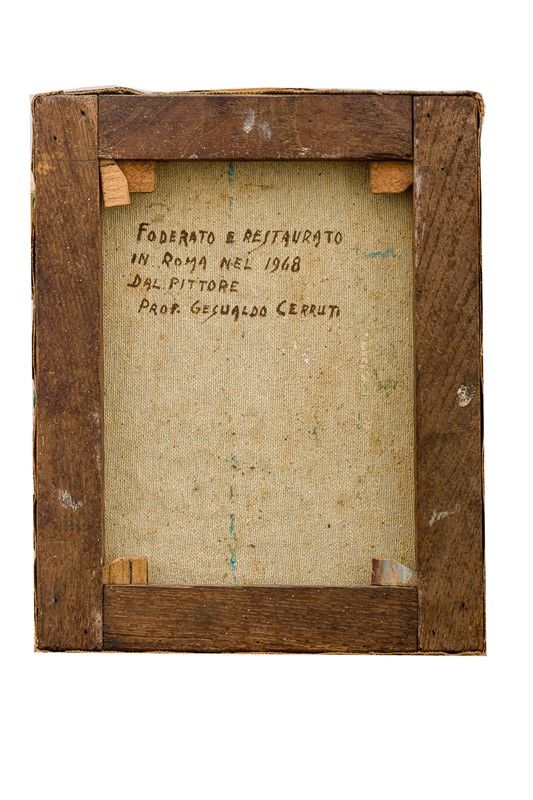 FODERATO E RESTAURATO
IN ROMA NEL 1968
DAL PITTORE
PROF. GESUALDO CERRUTI